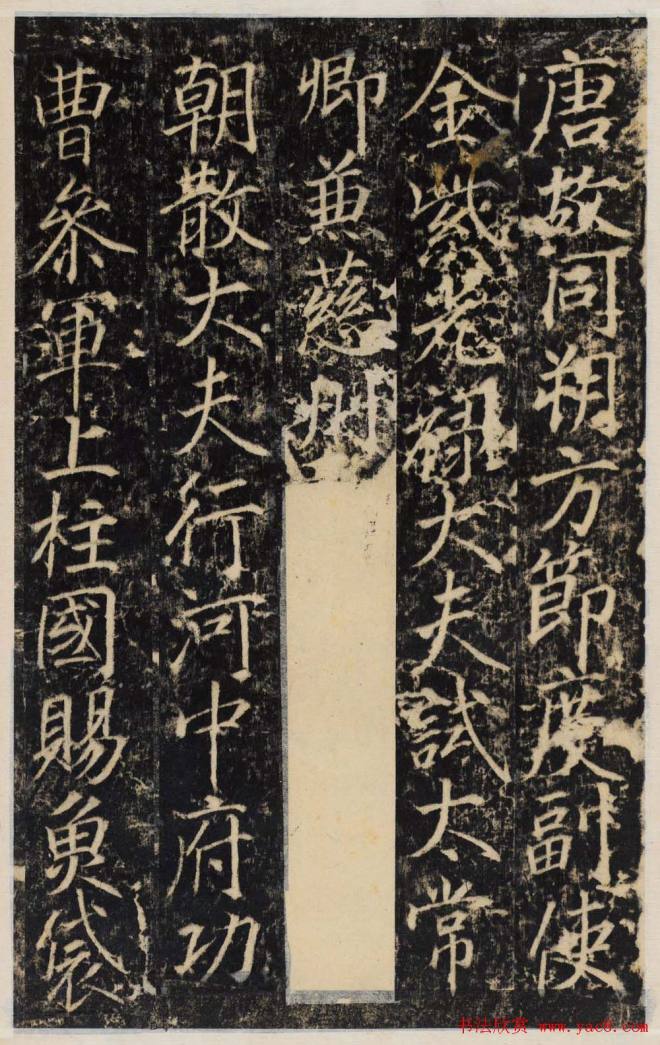 唐故同朔方節度副使
金紫光祿大夫試太常
卿兼慈州
朝散大夫行河中府功
曹叅軍上柱國賜魚袋
书法欣赏 www.yac8.com